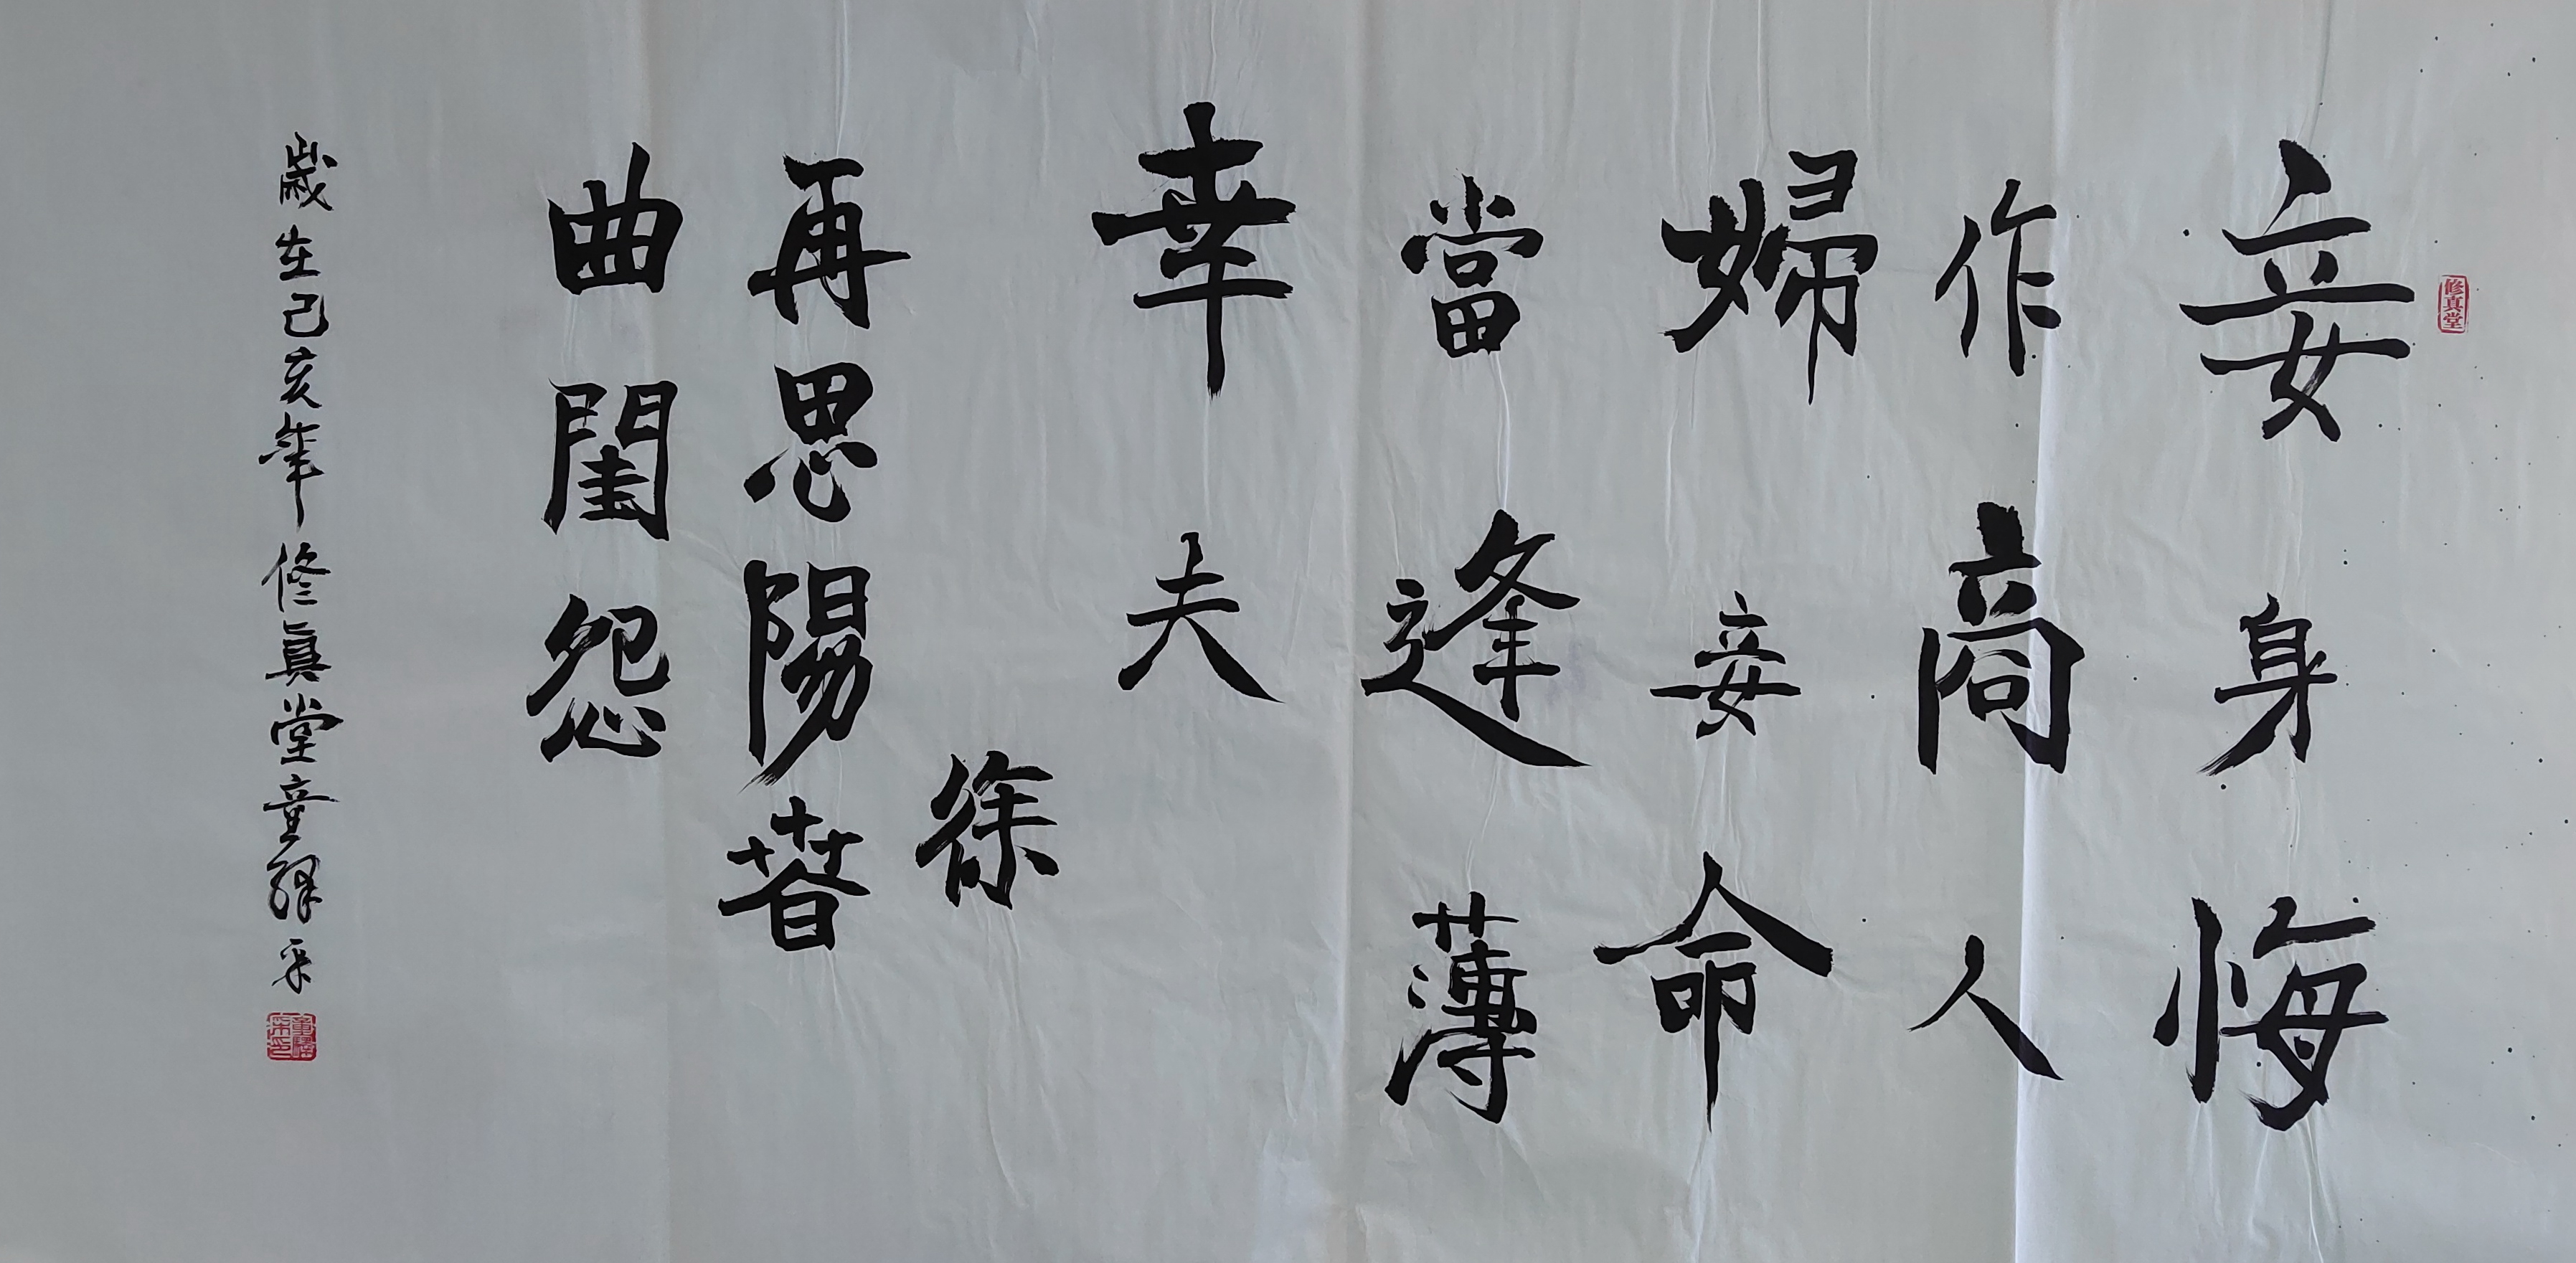 修真堂
妾身悔
作商人
婦妾命
當逢薄
幸夫
徐
再思陽春
曲閨怨
歲在己亥年修真堂童采